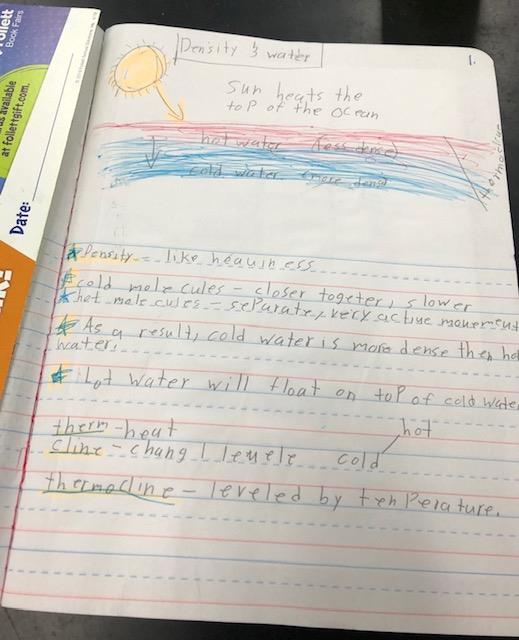 Follett
Book Fairs
as available
at follettgift.com.
Date:
Density & water
1.
Sun heats the
top of the Ocean
hot water (less dence)
cold water (more dens)
thermocline
Density = like heaviness
cold mole cules - closer togeter, slower
hot mole cules - separate, very active movement
As a result, cold water is more dense then hot
water.
hot water will float on top of cold water
therm - heat
hot
cline - chang | levele cold
thermocline - leveled by temperature.